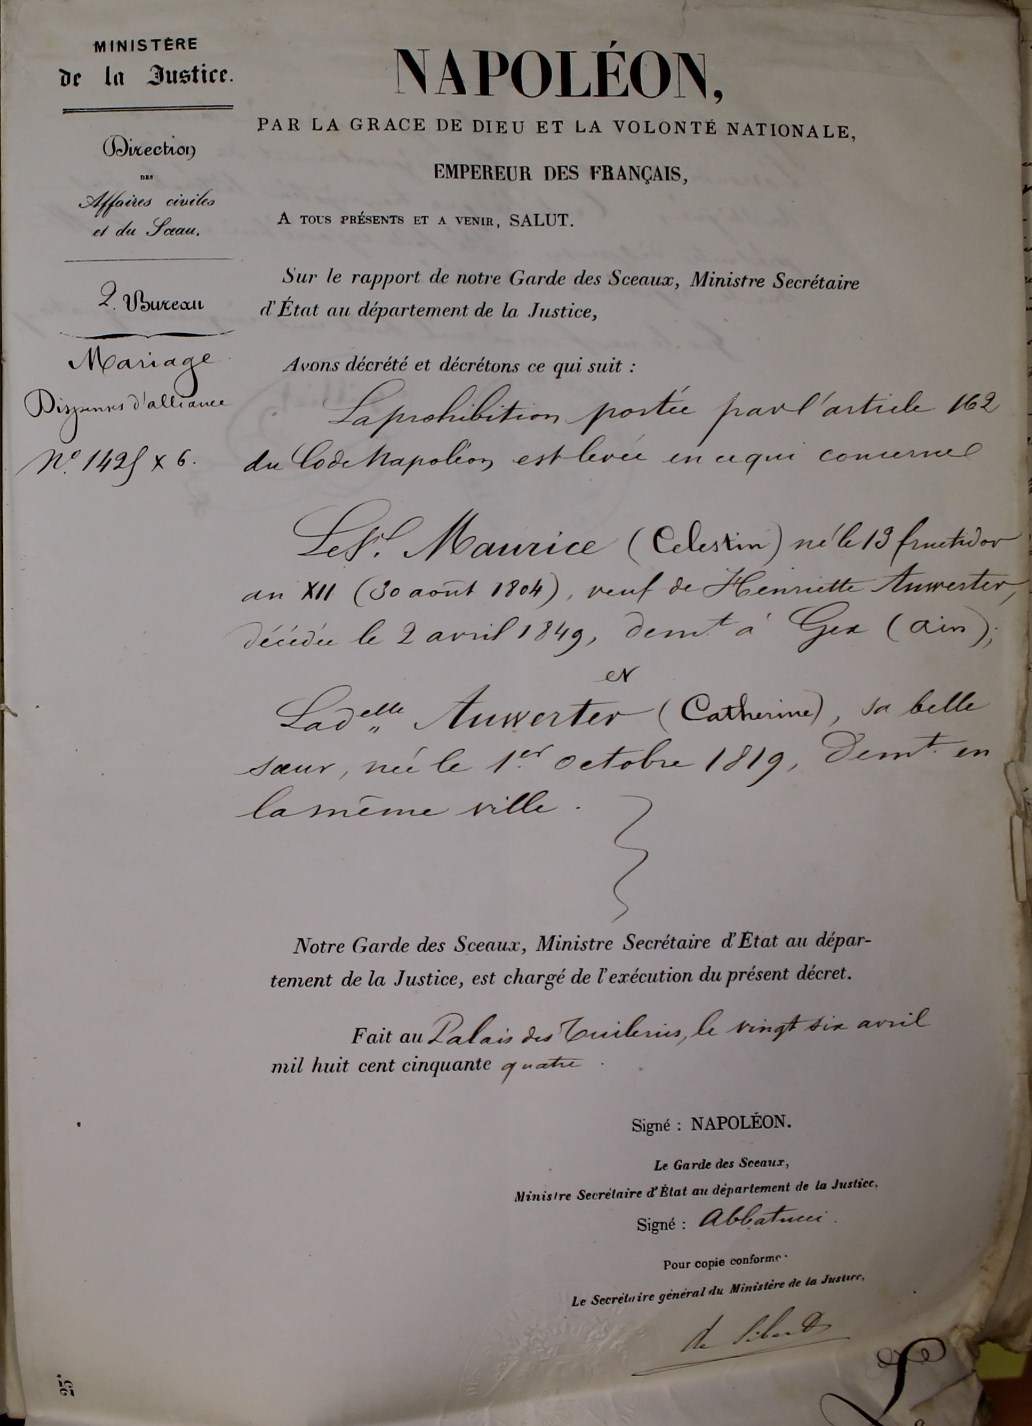 MINISTÈRE
de la Justice.
Direction
DES
Affaires civiles
et du Sceau.
2. Bureau
Mariage
Dispenses d'alliance
NAPOLÉON,
PAR LA GRACE DE DIEU ET LA VOLONTÉ NATIONALE,
EMPEREUR DES FRANÇAIS,
A TOUS PRÉSENTS ET A VENIR, SALUT.
Sur le rapport de notre Garde des Sceaux, Ministre Secrétaire
d'État au département de la Justice,
Avons décrété et décrétons ce qui suit :
La prohibition portée par l'article 162
du Code Napoléon est levée en ce qui concerne
Le Sr. Maurice (Celestin) né le 13 fructidor
an XII (30 août 1804), veuf de Henriette Auwerter,
décédée le 2 avril 1849, demt. à Gex (ain);
et
La delle Auwerter (Catherine), sa belle
sœur, née le 1er octobre 1819, Demt. en
la même ville.
Notre Garde des Sceaux, Ministre Secrétaire d'État au dépar-
tement de la Justice, est chargé de l'exécution du présent décret.
Fait au Palais des Tuileries, le vingt six avril
mil huit cent cinquante quatre.
Signé : NAPOLÉON.
Le Garde des Sceaux,
Ministre Secrétaire d'État au département de la Justice,
Signé : Abbatucci.
Pour copie conforme.
Le Secrétaire général du Ministère de la Justice,